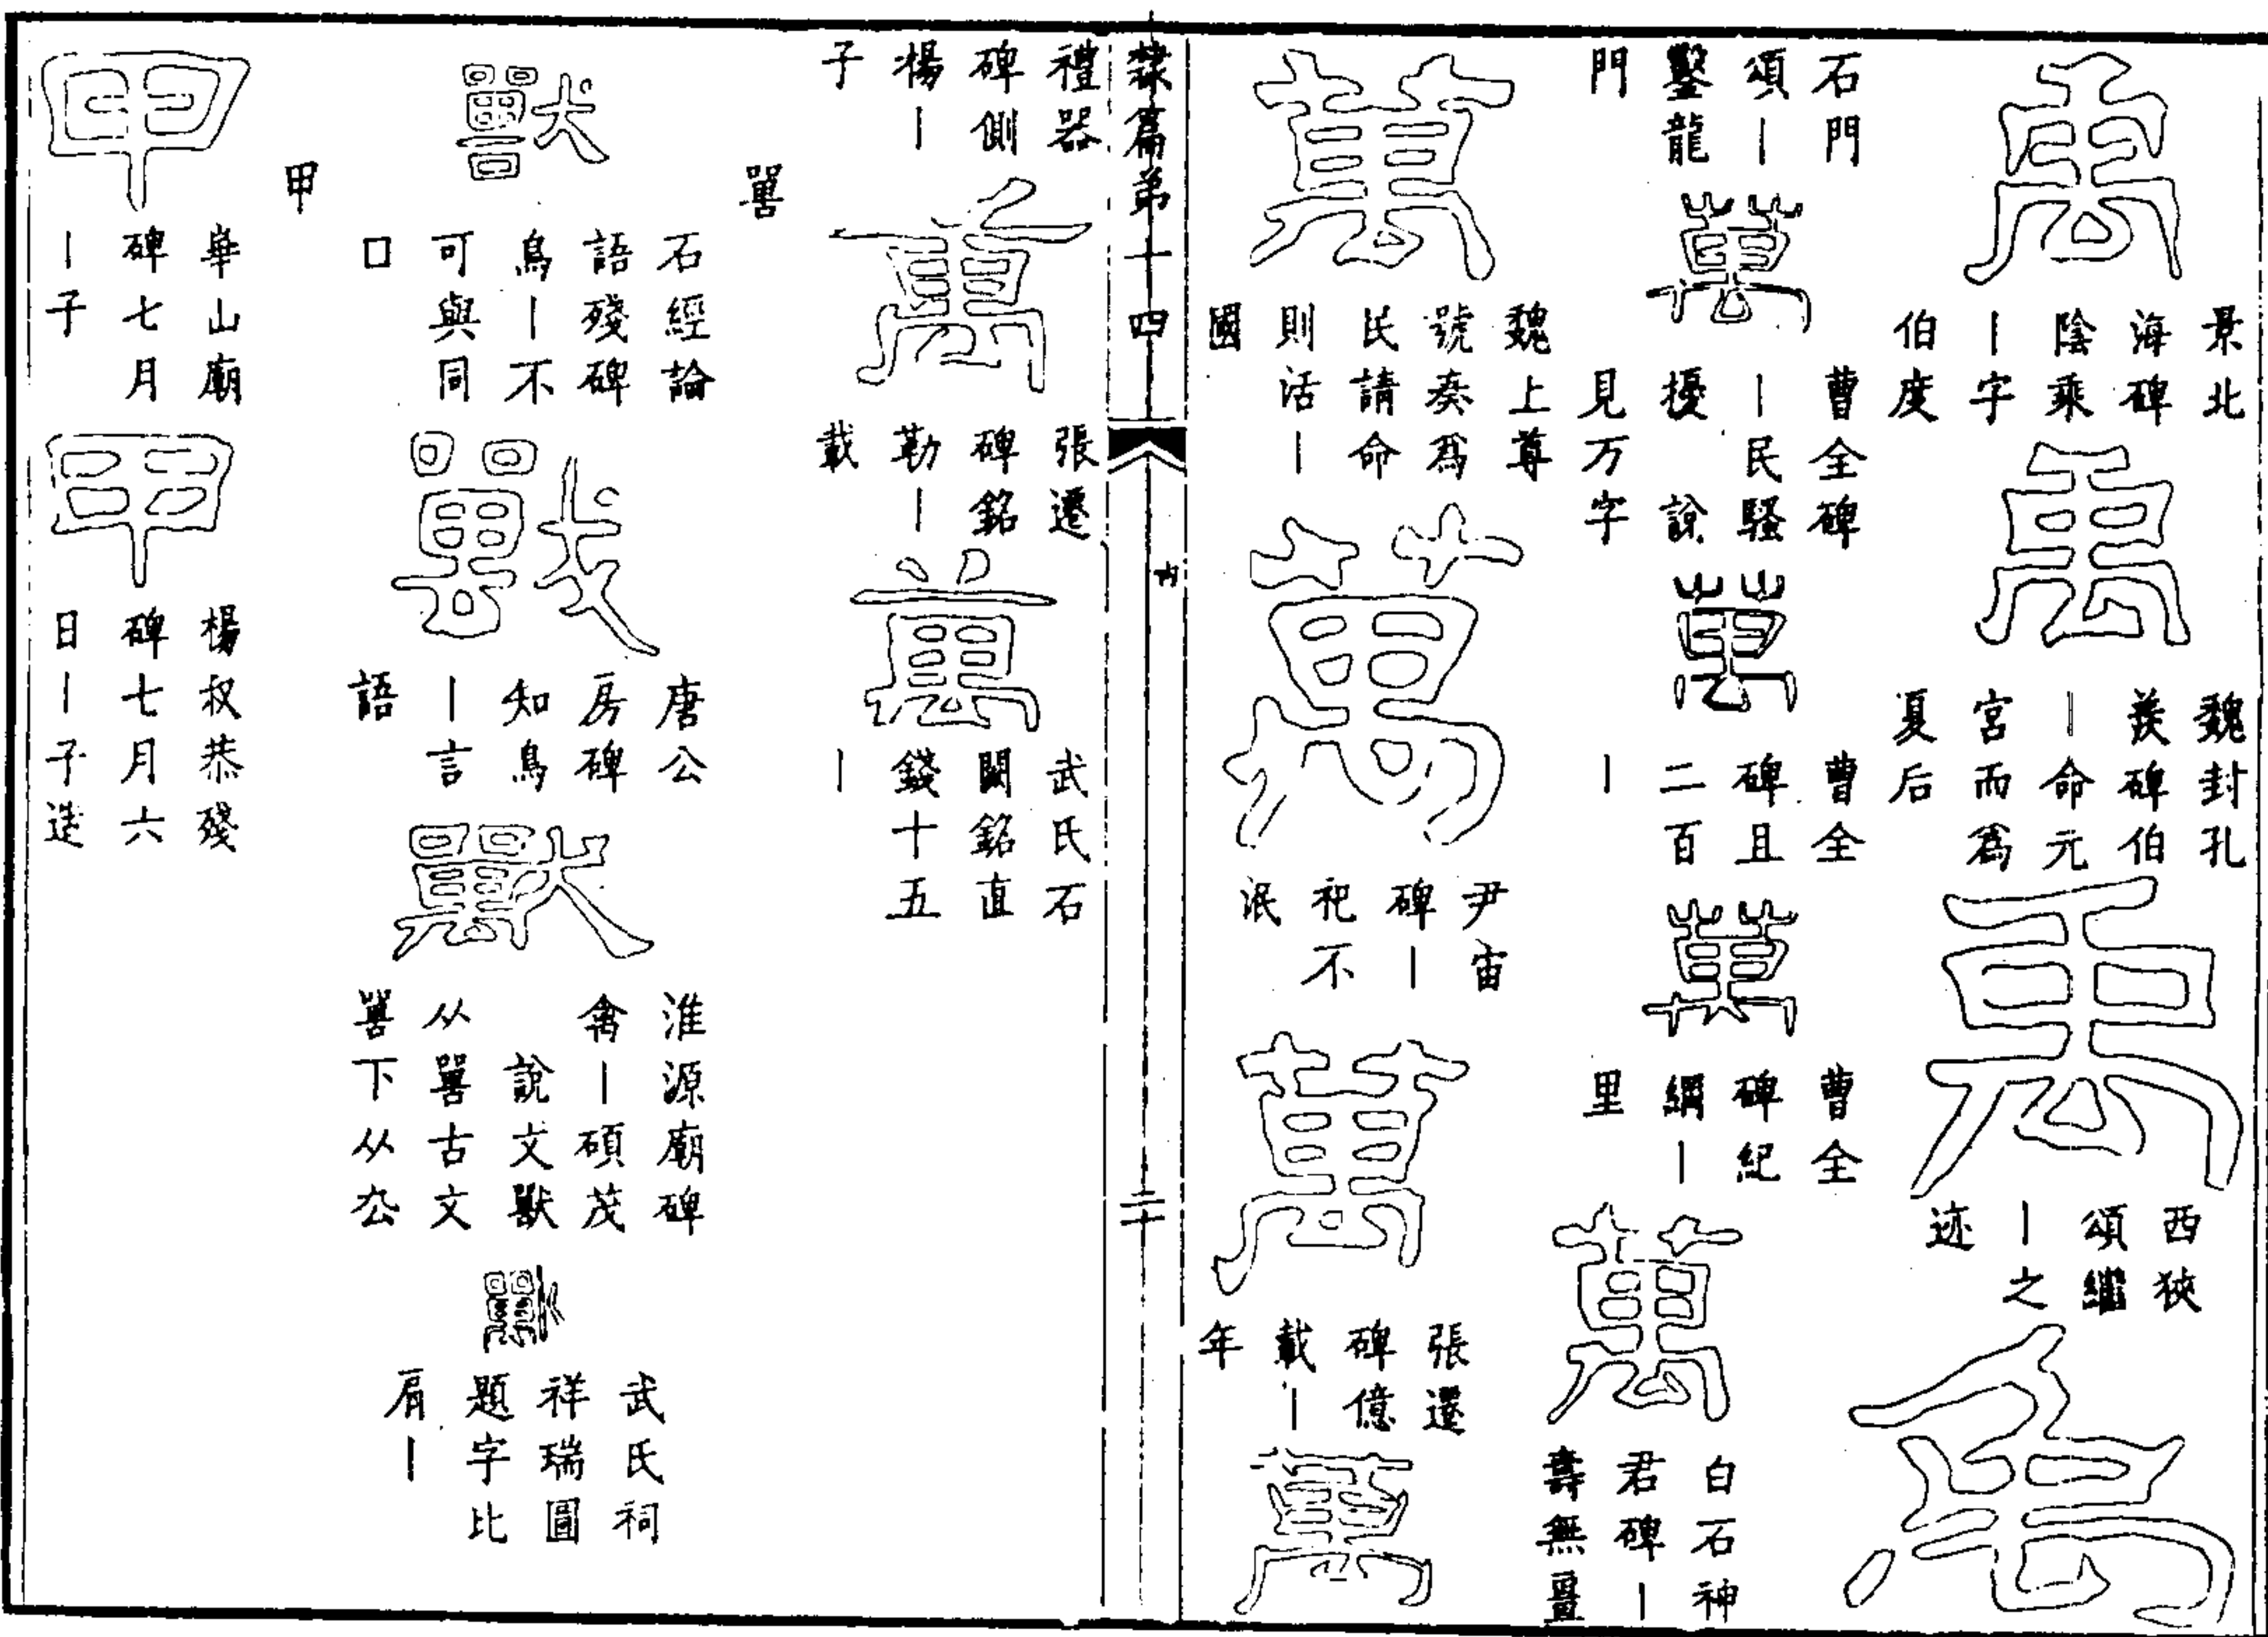 禹
景北
海碑
陰乘
｜字
伯度
禹
魏封孔
羨碑伯
｜命元
宮而爲
夏后
禹
西狹
頌繼
｜之
迹
禹
石門
頌｜
鑿龍
門
萬
曹全碑
｜民騷
擾　說
見万字
萬
曹全
碑且
二百
｜
萬
曹全
碑紀
綱｜
里
萬
白石神
君碑｜
壽無畺
萬
魏上尊
號奏爲
民請命
則活｜
國
萬
尹宙
碑｜
祀不
泯
萬
張遷
碑億
載｜
年
萬
隸篇弟十四
二十
禮器
碑側
楊｜
子
萬
張遷
碑銘
勒｜
載
萬
武氏石
闕銘直
錢十五
｜
嘼
獸
石經論
語殘碑
鳥｜不
可與同
囗
獸
唐公
房碑
知鳥
｜言
語
獸
淮源廟碑
禽｜碩茂
說文獸
从嘼古文
嘼下从厹
獸
武氏祠
祥瑞圖
題字比
肩｜
甲
甲
華山廟
碑七月
｜子
甲
楊叔恭殘
碑七月六
日｜子造